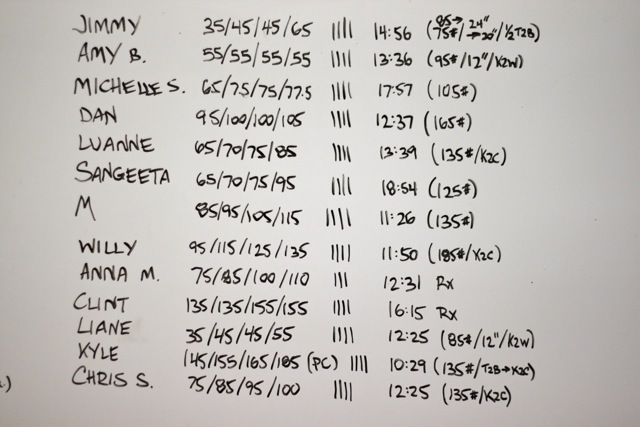 JIMMY 35/45/45/65 |||| 14:56 (85→ 75#/ 24" →20"/½T2B)
AMY B. 55/55/55/55 |||| 13:36 (95#/12"/K2W)
MICHELLE S. 65/75/75/77.5 |||| 17:57 (105#)
DAN 95/100/100/105 |||| 12:37 (165#)
LUANNE 65/70/75/85 |||| 13:39 (135#/K2C)
SANGEETA 65/70/75/95 |||| 18:54 (125#)
M 85/95/105/115 |||| 11:26 (135#)
WILLY 95/115/125/135 |||| 11:50 (185#/K2C)
ANNA M. 75/85/100/110 ||| 12:31 Rx
CLINT 135/135/155/155 |||| 16:15 Rx
LIANE 35/45/45/55 |||| 12:25 (85#/12"/K2W)
KYLE 145/155/165/185 (PC) |||| 10:29 (135#/T2B→K2C)
.) CHRIS S. 75/85/95/100 |||| 12:25 (135#/K2C)